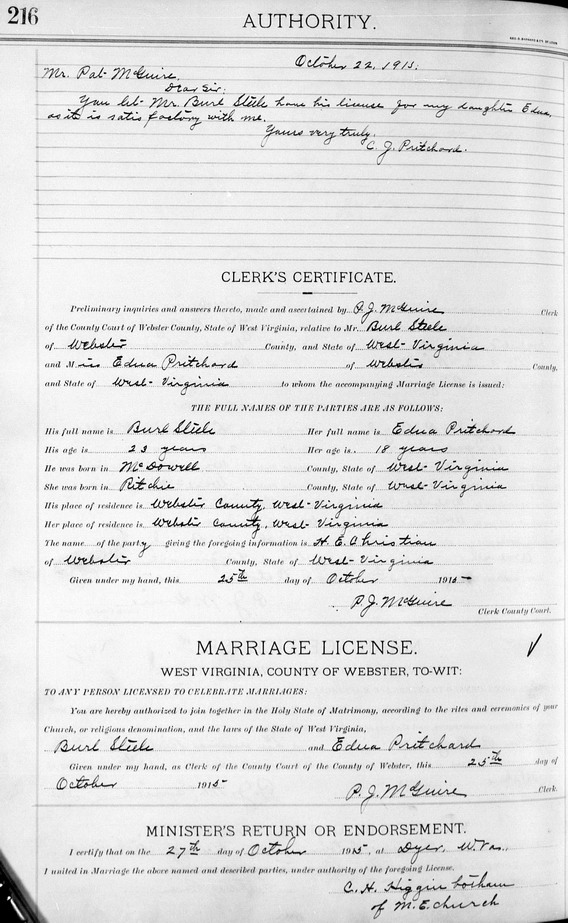 216
AUTHORITY.
October 22, 1915.
Mr. Pat McGuire,
Dear Sir:
You let Mr. Burl Steele have his license for my daughter Edna,
as it is satisfactory with me.
Yours very truly,
C. J. Pritchard.
CLERK'S CERTIFICATE.
Preliminary inquiries and answers thereto, made and ascertained by P. J. McGuire Clerk
of the County Court of Webster County, State of West Virginia, relative to Mr. Burl Steele
of Webster County, and State of West Virginia
and Miss Edna Pritchard of Webster County,
and State of West Virginia to whom the accompanying Marriage License is issued:
THE FULL NAMES OF THE PARTIES ARE AS FOLLOWS:
His full name is Burl Steele Her full name is Edna Pritchard
His age is 23 years Her age is 18 years
He was born in McDowell County, State of West Virginia
She was born in Ritchie County, State of West Virginia
His place of residence is Webster County, West Virginia
Her place of residence is Webster County, West Virginia
The name of the party giving the foregoing information is H. E. Christian
of Webster County, State of West Virginia
Given under my hand, this 25th day of October 1915
P. J. McGuire
Clerk County Court.
MARRIAGE LICENSE.
WEST VIRGINIA, COUNTY OF WEBSTER, TO-WIT:
TO ANY PERSON LICENSED TO CELEBRATE MARRIAGES:
You are hereby authorized to join together in the Holy State of Matrimony, according to the rites and ceremonies of your
Church, or religious denomination, and the laws of the State of West Virginia,
Burl Steele and Edna Pritchard
Given under my hand, as Clerk of the County Court of the County of Webster, this 25th day of
October 1915
P. J. McGuire Clerk.
MINISTER'S RETURN OR ENDORSEMENT.
I certify that on the 27th day of October 1915, at Dyer, W. Va.,
I united in Marriage the above named and described parties, under authority of the foregoing License.
C. H. Higginbotham
of M. E. church